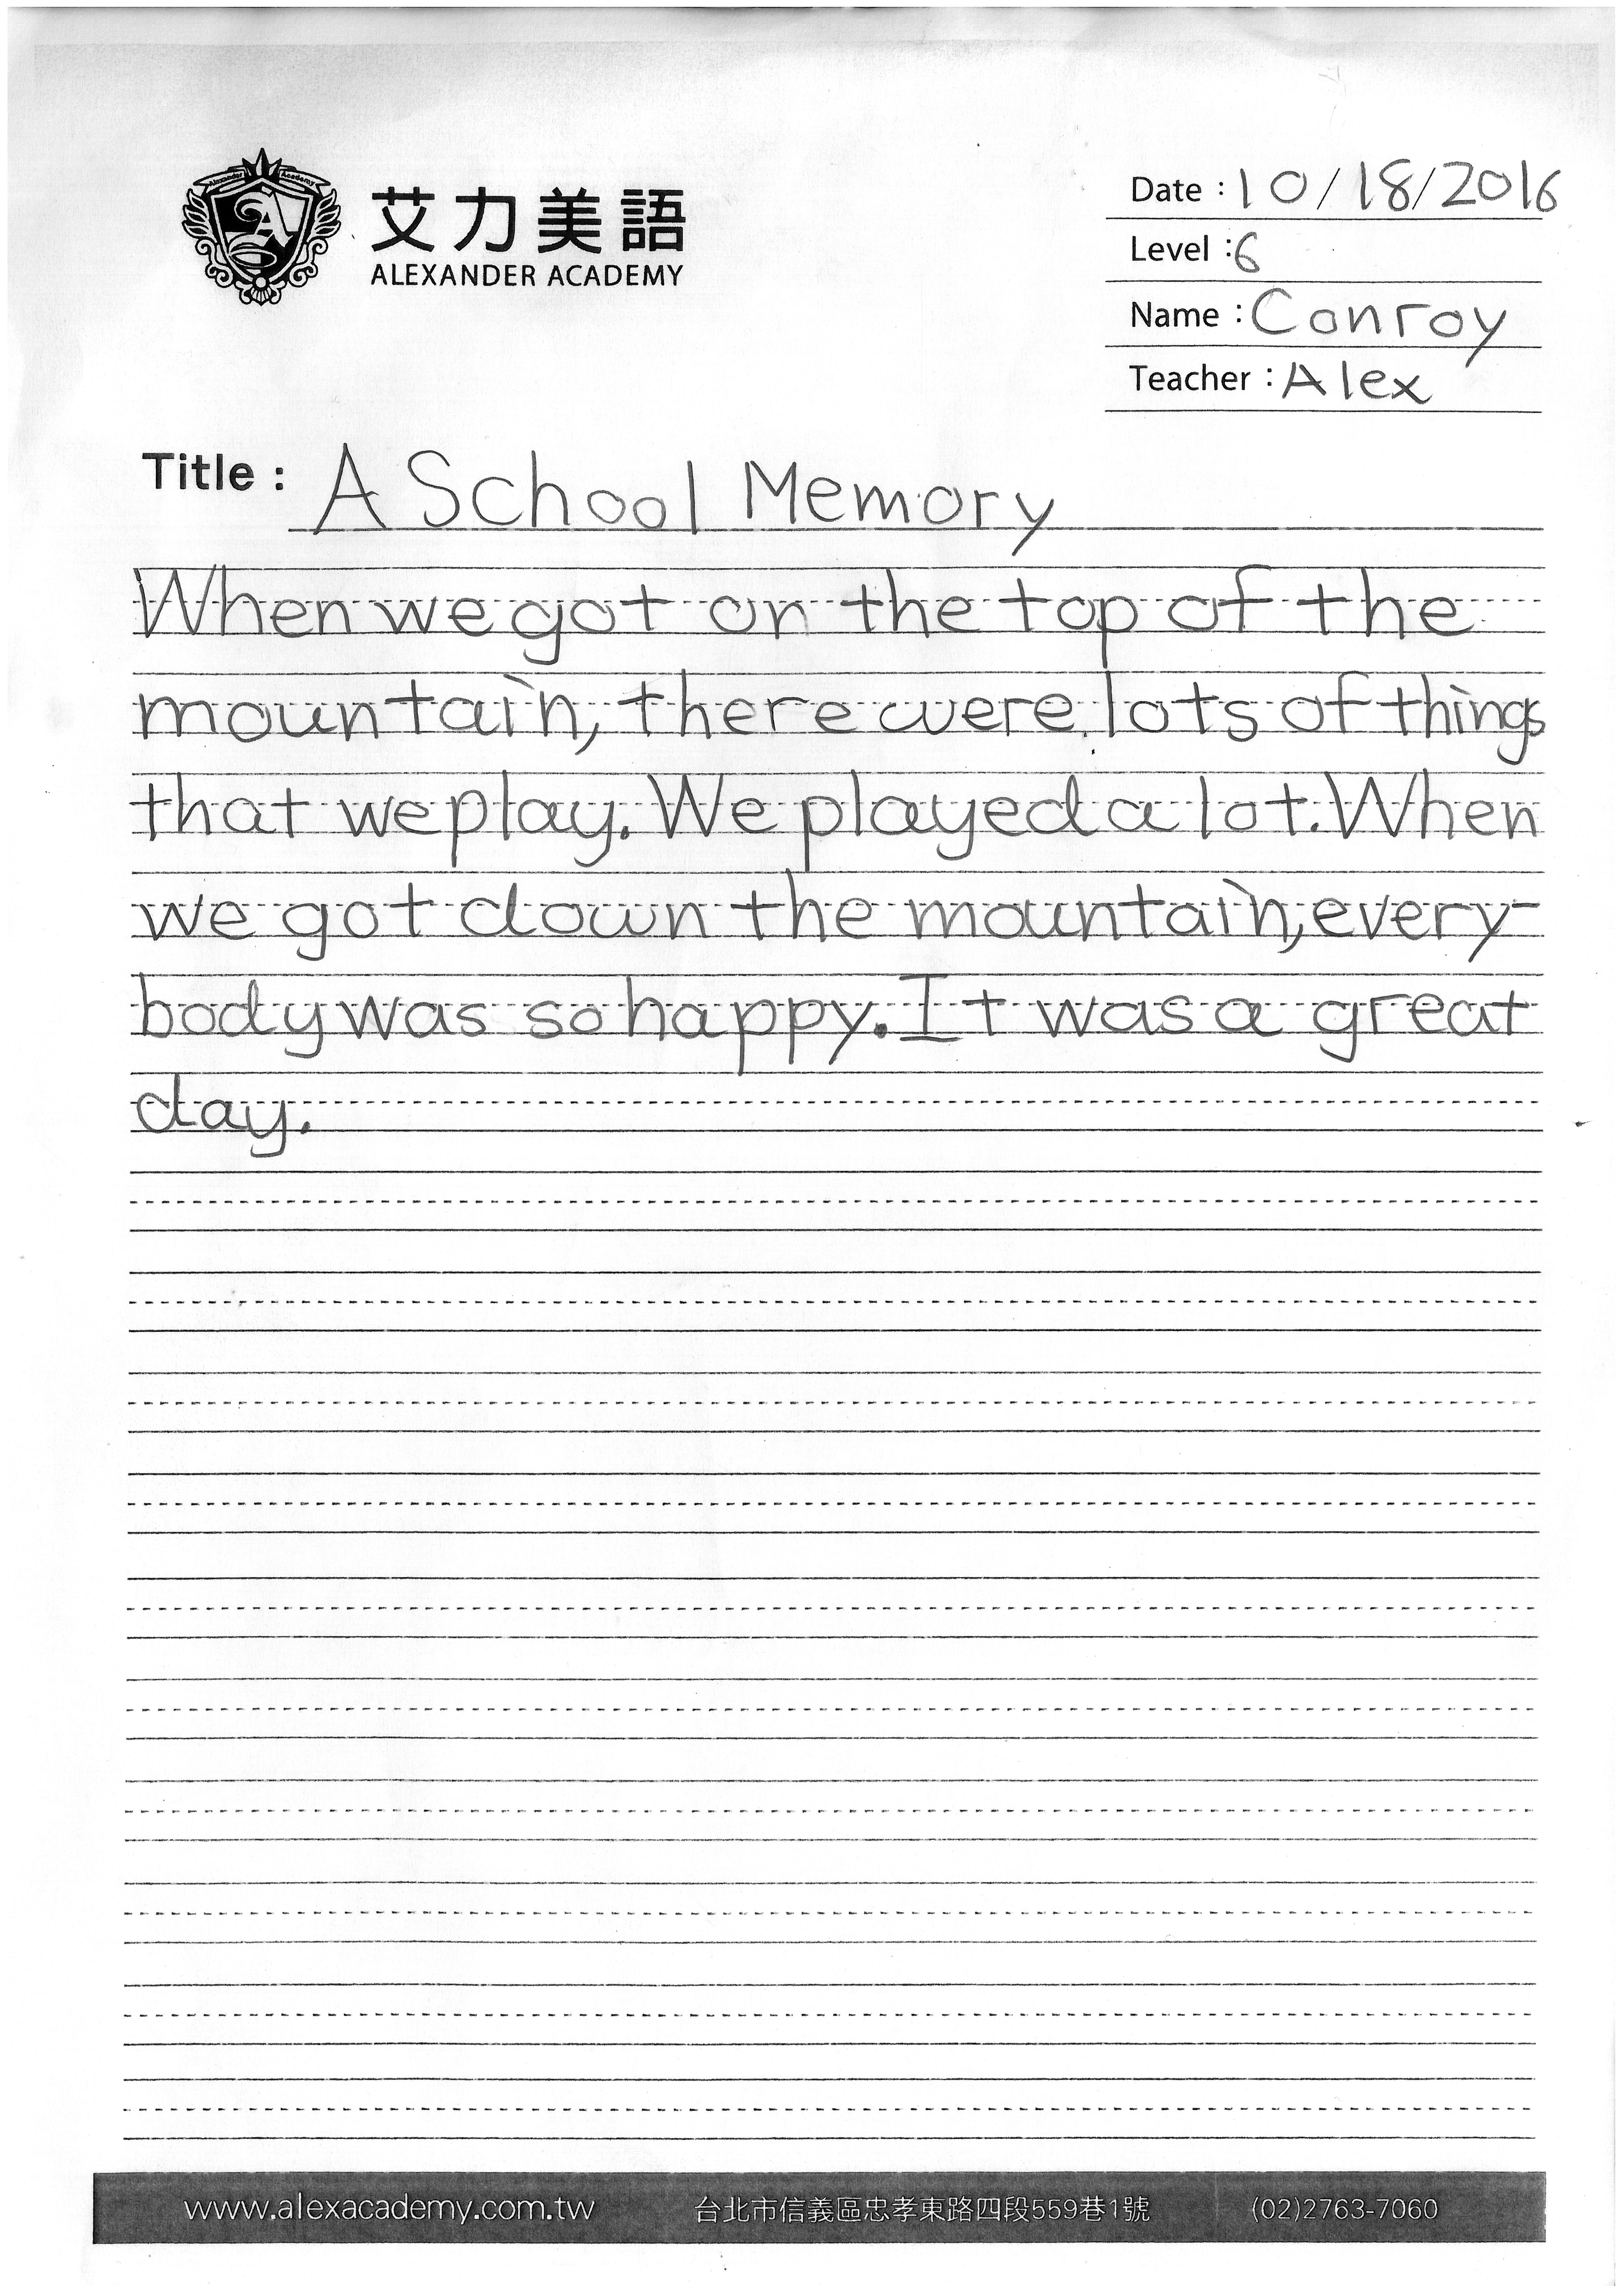 Alexander Academy
艾力美語
ALEXANDER ACADEMY
Date : 10/18/2016
Level : 6
Name : Conroy
Teacher : Alex
Title : A School Memory
When we got on the top of the
mountain, there were lots of things
that we play. We played a lot. When
we got down the mountain, every-
body was so happy. It was a great
day.
www.alexacademy.com.tw 台北市信義區忠孝東路四段559巷1號 (02)2763-7060